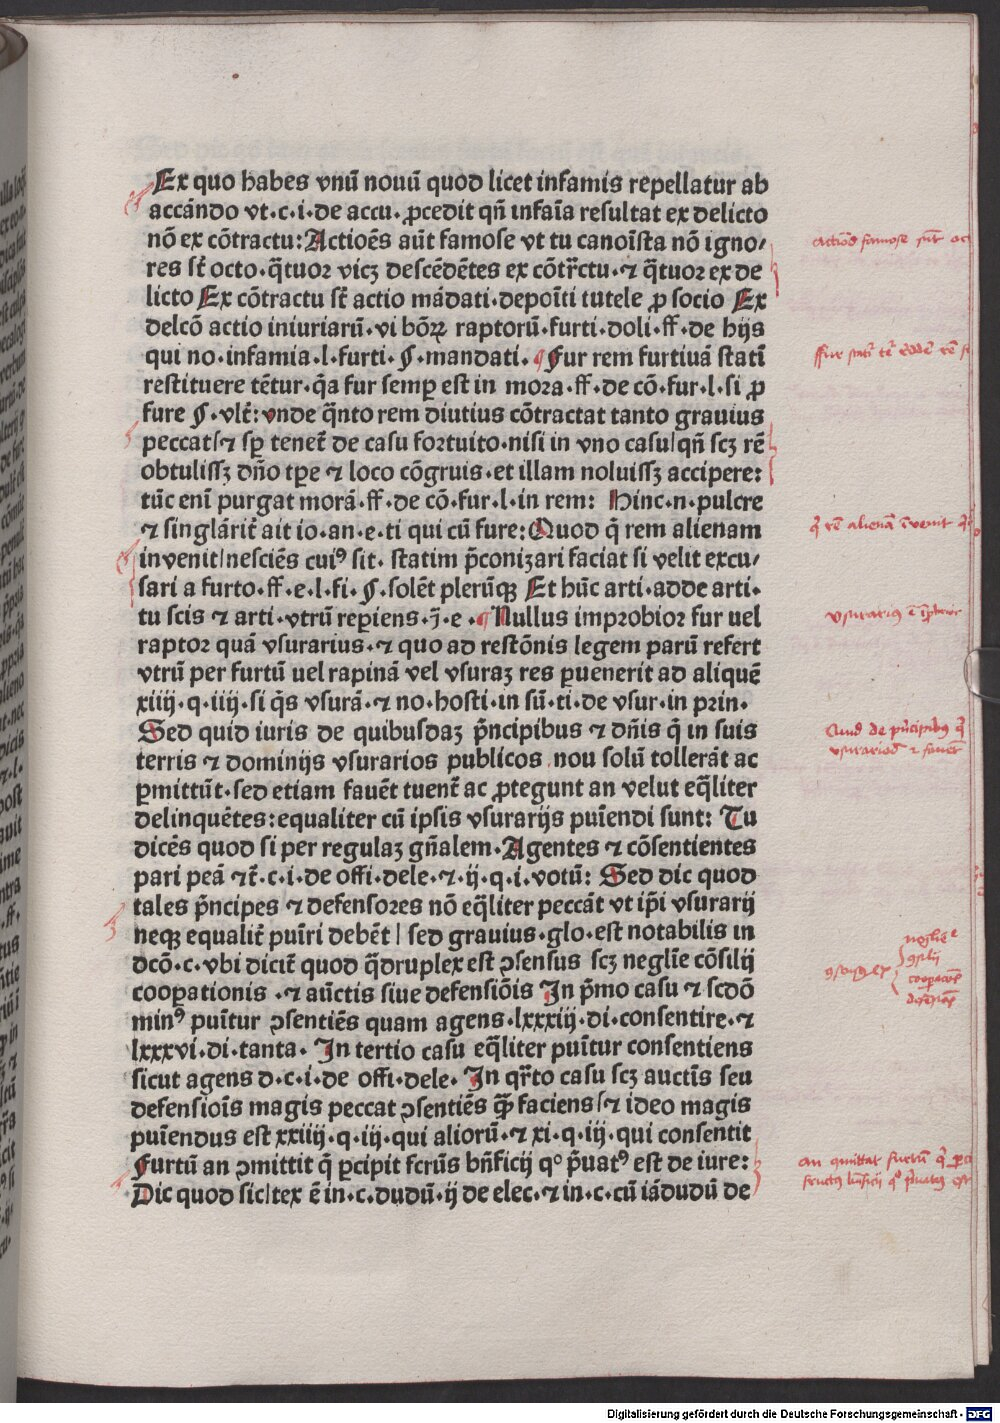 Ex quo habes vnū nouū quod licet infamis repellatur ab
accādo vt·c·i·de accu·ꝓcedit qn̄ infaīa resultat ex delicto
nō ex cōtractu: Actioēs aūt famose vt tu canoīsta nō igno/
res st̄ octo·q̄tuor vicꝫ descēdētes ex cōtr̄ctu·⁊ q̄tuor ex de
licto Ex cōtractu st̄ actio mādati·depoīti tutele ꝓ socio Ex
delcō actio iniuriarū·vi boꝝ raptorū·furti·doli·ff·de hijs
qui no·infamia·l·furti·§·mandati·¶Fur rem furtiuā statī
restituere tētur·q̄a fur semꝑ est in mora·ff·de cō·fur·l·si ꝓ
fure §·vlt̄: vnde q̄nto rem diutius cōtractat tanto grauius
peccat/⁊ sꝑ tenet̄ de casu fortuito·nisi in vno casu/qn̄ scꝫ rē
obtulissꝫ dn̄o tꝑe ⁊ loco cōgruis·et illam noluissꝫ accipere:
tūc enī purgat morā·ff·de cō·fur·l·in rem: Hinc·n·pulcre
⁊ singlārit̄ ait io·an·e·ti qui cū fure: Quod q̄ rem alienam
invenit/nesciēs cuiꝰ sit· statim p̄conizari faciat si velit excu/
sari a furto·ff·e·l·fi·§·solēt plerūqꝫ Et hūc arti·adde arti·
tu scis ⁊ arti·vtrū reꝑiens·j̄·e·¶Nullus improbior fur uel
raptor quā vsurarius·⁊ quo ad restōnis legem parū refert
vtrū per furtū uel rapinā vel vsuraꝫ res ꝑuenerit ad aliquē
xiiij·q·iiij·si q̄s vsurā·⁊ no·hosti·in sū·ti·de vsur·in prin·
Sed quid iuris de quibusdaꝫ p̄ncipibus ⁊ dn̄is q̄ in suis
terris ⁊ dominijs vsurarios publicos nou solū tollerāt ac
ꝑmittūt·sed etiam fauēt tuent̄ ac ꝓtegunt an velut eq̄liter
delinquētes: equaliter cū ipsis vsurarijs puīendi sunt: Tu
dicēs quod si per regulaꝫ gn̄alem·Agentes ⁊ cōsentientes
pari peā ⁊t̄·c·i·de offi·dele·⁊·ij·q·i·votū: Sed dic quod
tales p̄ncipes ⁊ defensores nō eq̄liter peccāt vt ip̄i vsurarij
neqꝫ equalit̄ puīri debēt/ sed grauius·glo·est notabilis in
dcō·c·vbi dicit̄ quod q̄druplex est ↄsensus scꝫ neglīe cōsilij
cooꝑationis·⁊ aūctis siue defensiōis In p̄mo casu ⁊ scdō
minꝰ puītur ↄsentiēs quam agens·lxxxiij·di·consentire·⁊
lxxxvi·di·tanta· In tertio casu eq̄liter puītur consentiens
sicut agens d·c·i·de offi·dele· In qr̄to casu scꝫ auctīs seu
defensioīs magis peccat ↄsentiēs q̄ꝫ faciens/⁊ ideo magis
puīendus est xxiiij·q·iij·qui aliorū·⁊ xi·q·iij·qui consentit
Furtū an ↄmittit q̄ ꝑcipit fcrūs bn̄ficij qº p̄uatꝰ est de iure:
Dic quod sic/tex ē in·c·dudū·ij de elec·⁊ in·c·cū iādudū de
Quid de p̄ncipibꝰ q̄
Digitalisierung gefördert durch die Deutsche Forschungsgemeinschaft · DFG